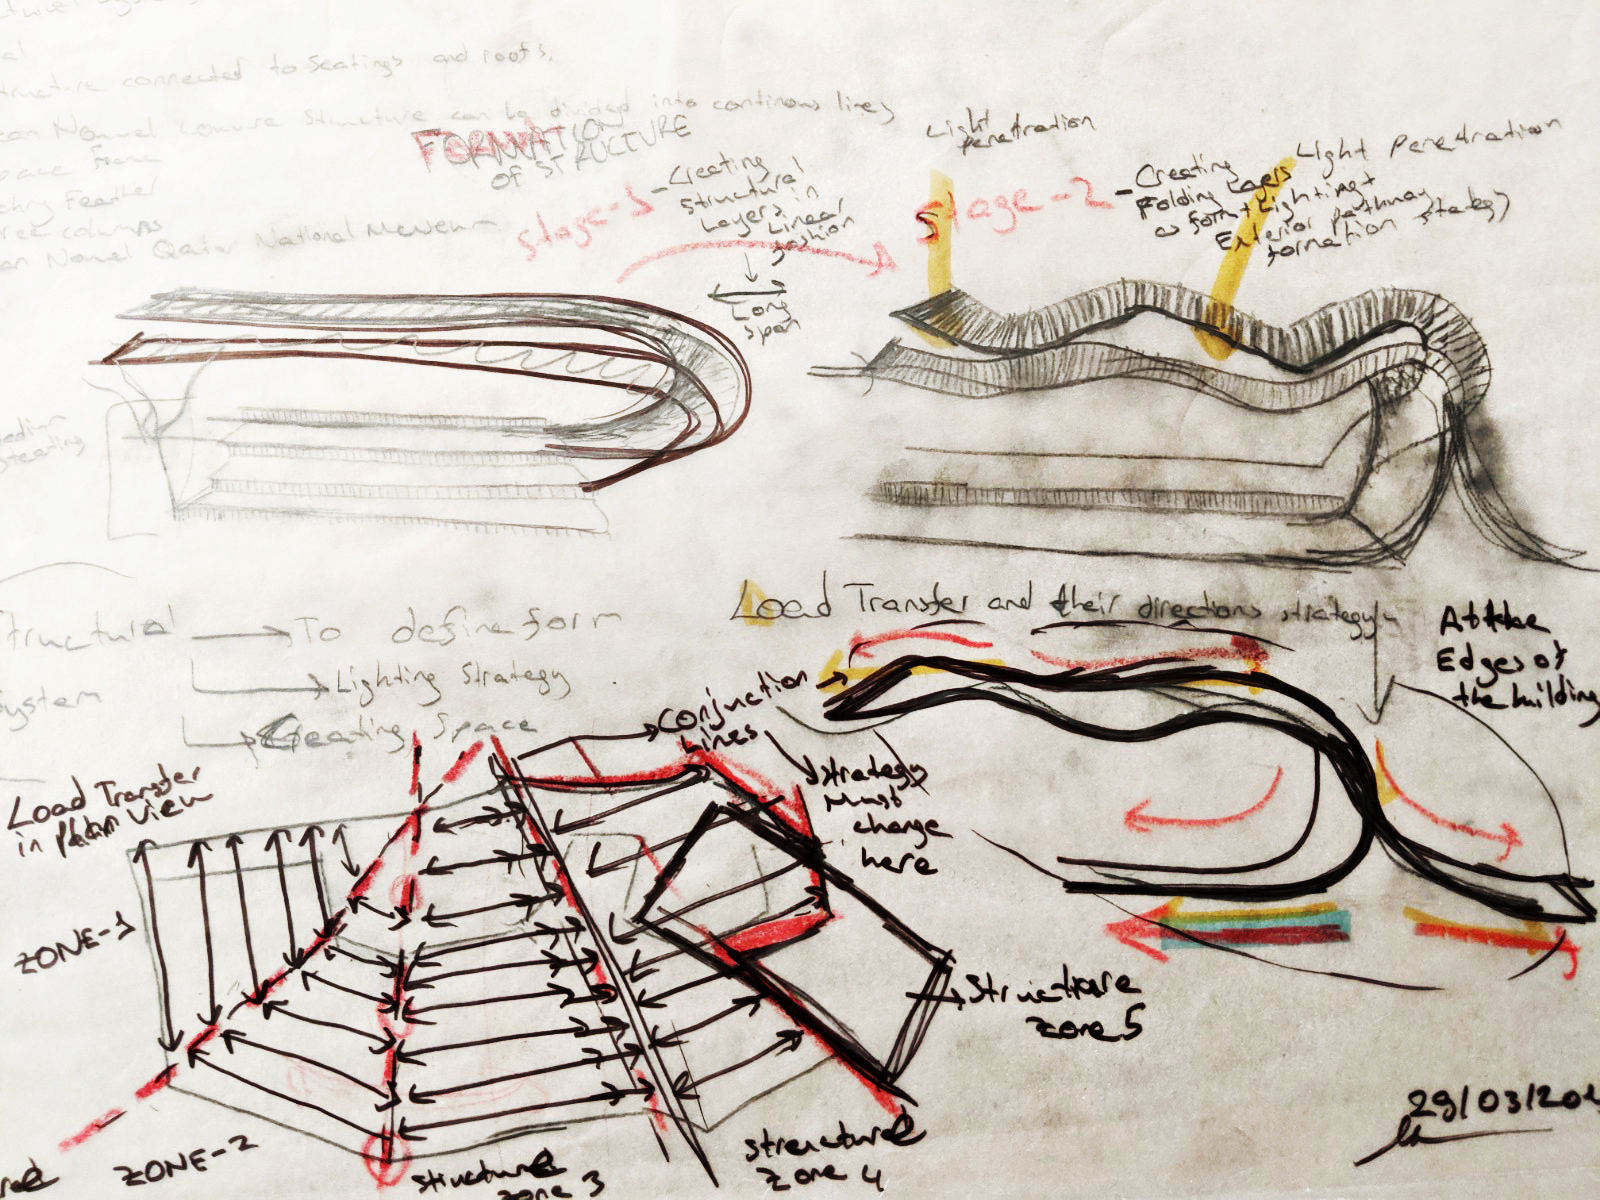 structure connected to seatings and roofs.
Nouvel Louvre structure can be divided into continous lines
space frame
tree columns
Nouvel Qatar National Museum
FORMATION
OF STRUCTURE
Stage-1
-Creating
structural
Layers in
Linear
fashion
Long
span
Light
penetration
Stage-2
-Creating
Folding Layers
as format Lighting+
Exterior pathway
formation strategy
Light penetration
Structural
System
To define form
Lighting Strategy
Creating Space
Load Transfer and their directions strategy
At the
Edges of
the building
Conjunction
Lines
strategy
Must
change
here
Load Transfer
in plan view
ZONE-1
ZONE-2
structure
zone 3
structure
zone 4
structure
zone 5
29/03/20